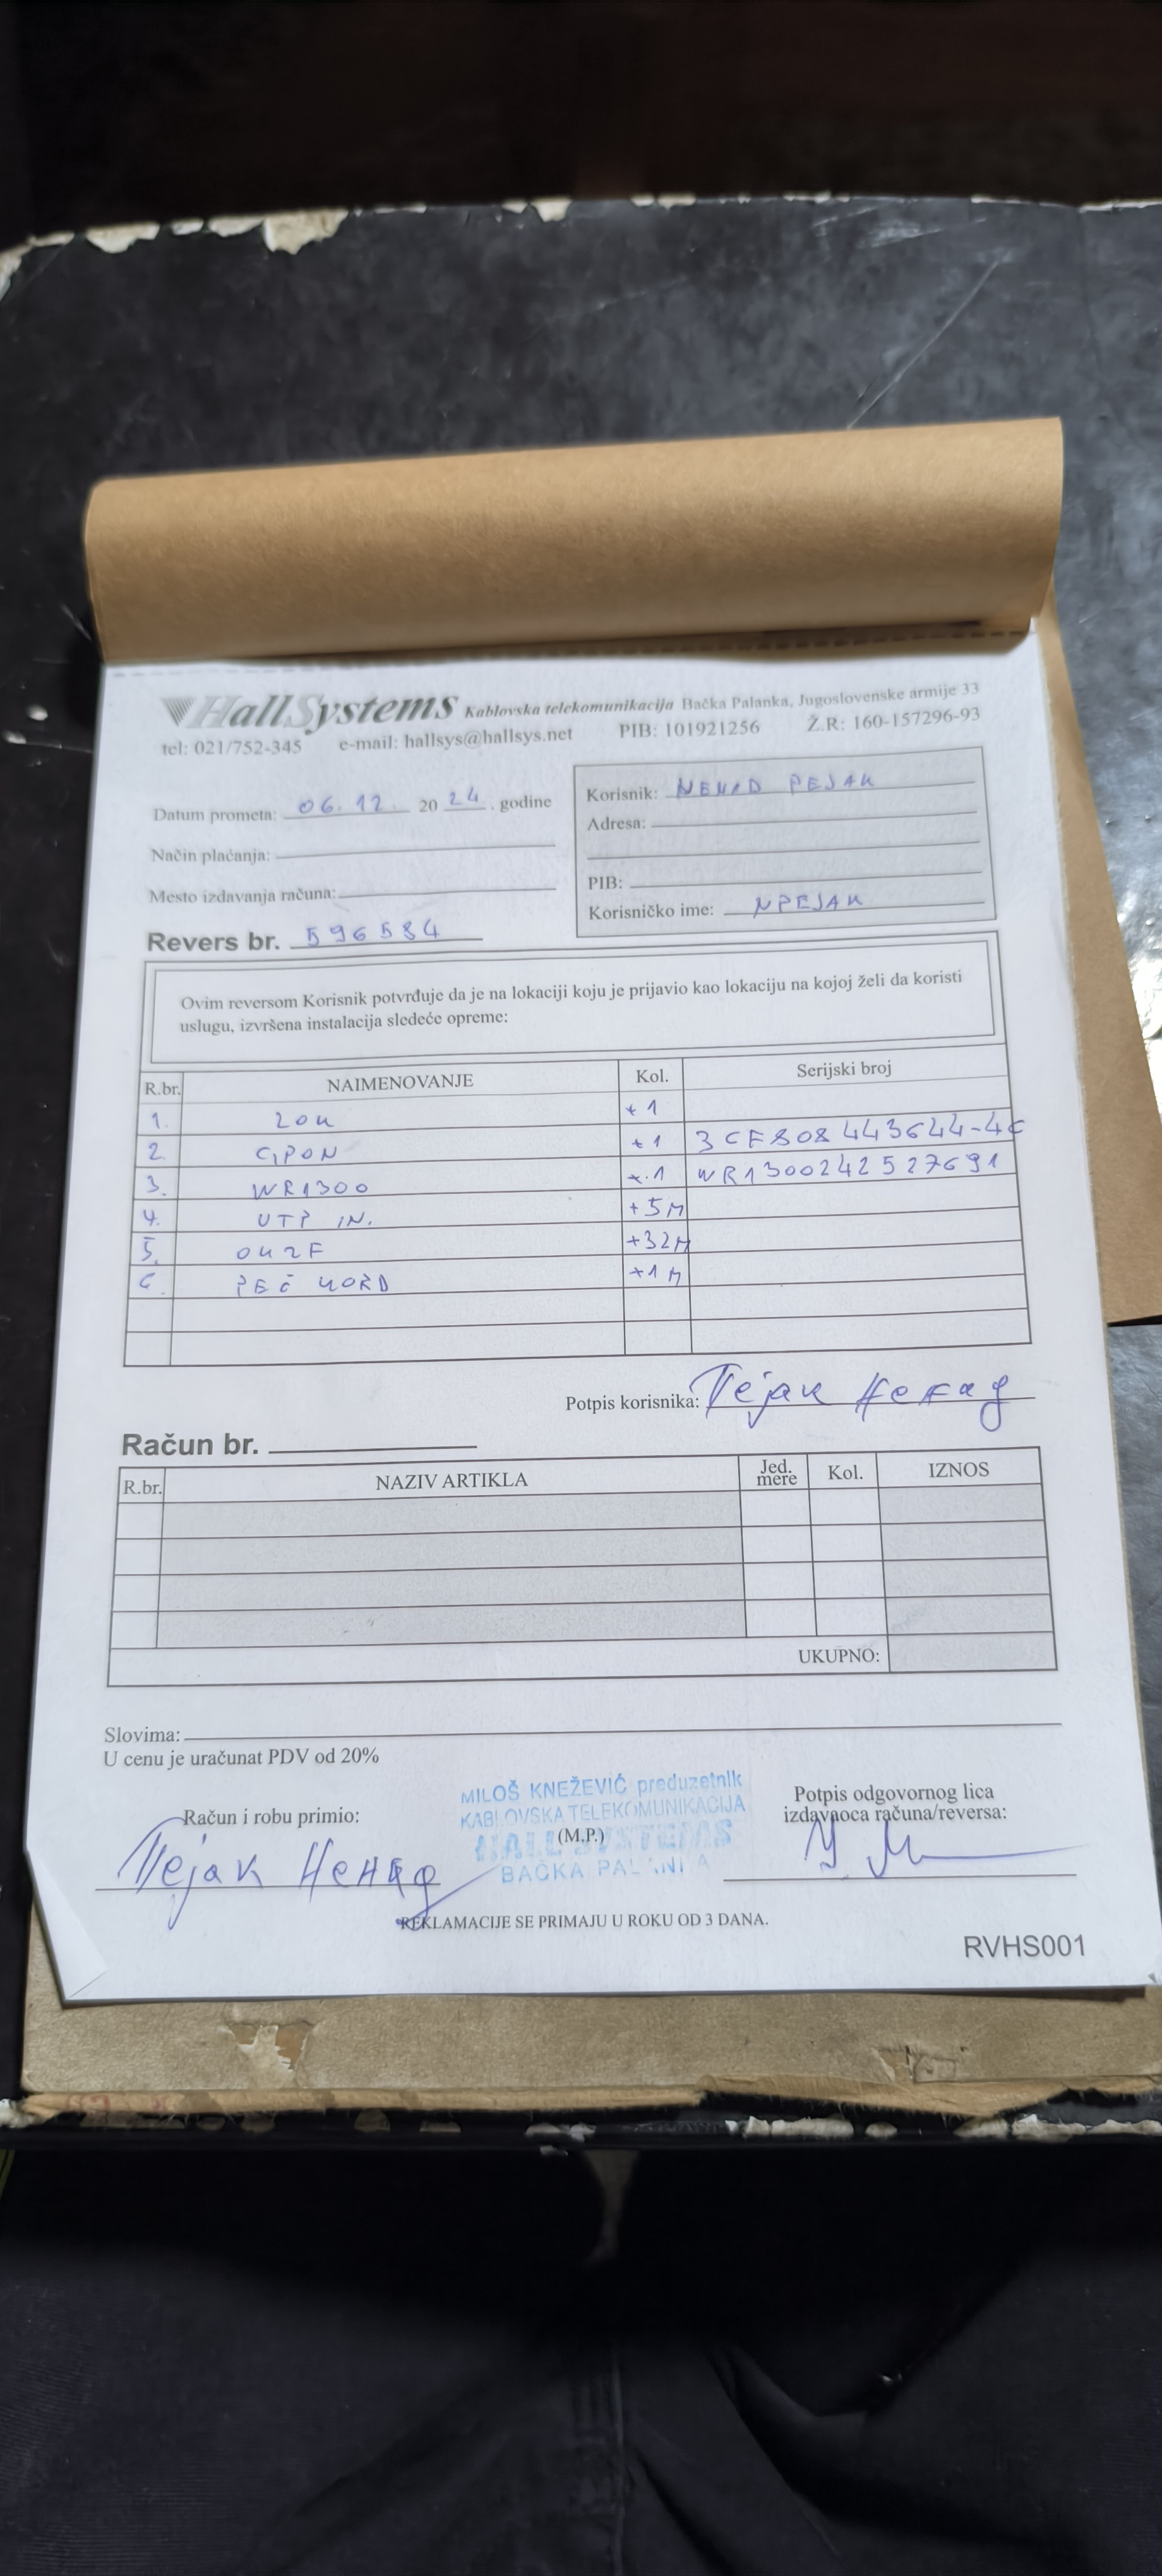 HallSystems Kablovska telekomunikacija Bačka Palanka, Jugoslovenske armije 33
tel: 021/752-345 e-mail: hallsys@hallsys.net PIB: 101921256 Ž.R: 160-157296-93
Datum prometa: 06.12. 2024. godine
Način plaćanja:
Mesto izdavanja računa:
Korisnik: NENAD PEJAK
Adresa:
PIB:
Korisničko ime: NPEJAK
Revers br. 596584
Ovim reversom Korisnik potvrđuje da je na lokaciji koju je prijavio kao lokaciju na kojoj želi da koristi
uslugu, izvršena instalacija sledeće opreme:
R.br. NAIMENOVANJE Kol. Serijski broj
1. ZOK +1
2. GPON +1 3CF808443644-4C
3. WR1300 +1 WR1300242527691
4. UTP IN. +5M
5. OK2F +32M
6. PEČ KORD +1M
Potpis korisnika: Пејак Ненад
Račun br.
R.br. NAZIV ARTIKLA Jed. mere Kol. IZNOS
UKUPNO:
Slovima:
U cenu je uračunat PDV od 20%
Račun i robu primio:
Пејак Ненад
MILOŠ KNEŽEVIĆ preduzetnik
KABLOVSKA TELEKOMUNIKACIJA
(M.P.)
HALL SYSTEMS
BAČKA PALANKA
Potpis odgovornog lica
izdavaoca računa/reversa:
REKLAMACIJE SE PRIMAJU U ROKU OD 3 DANA.
RVHS001